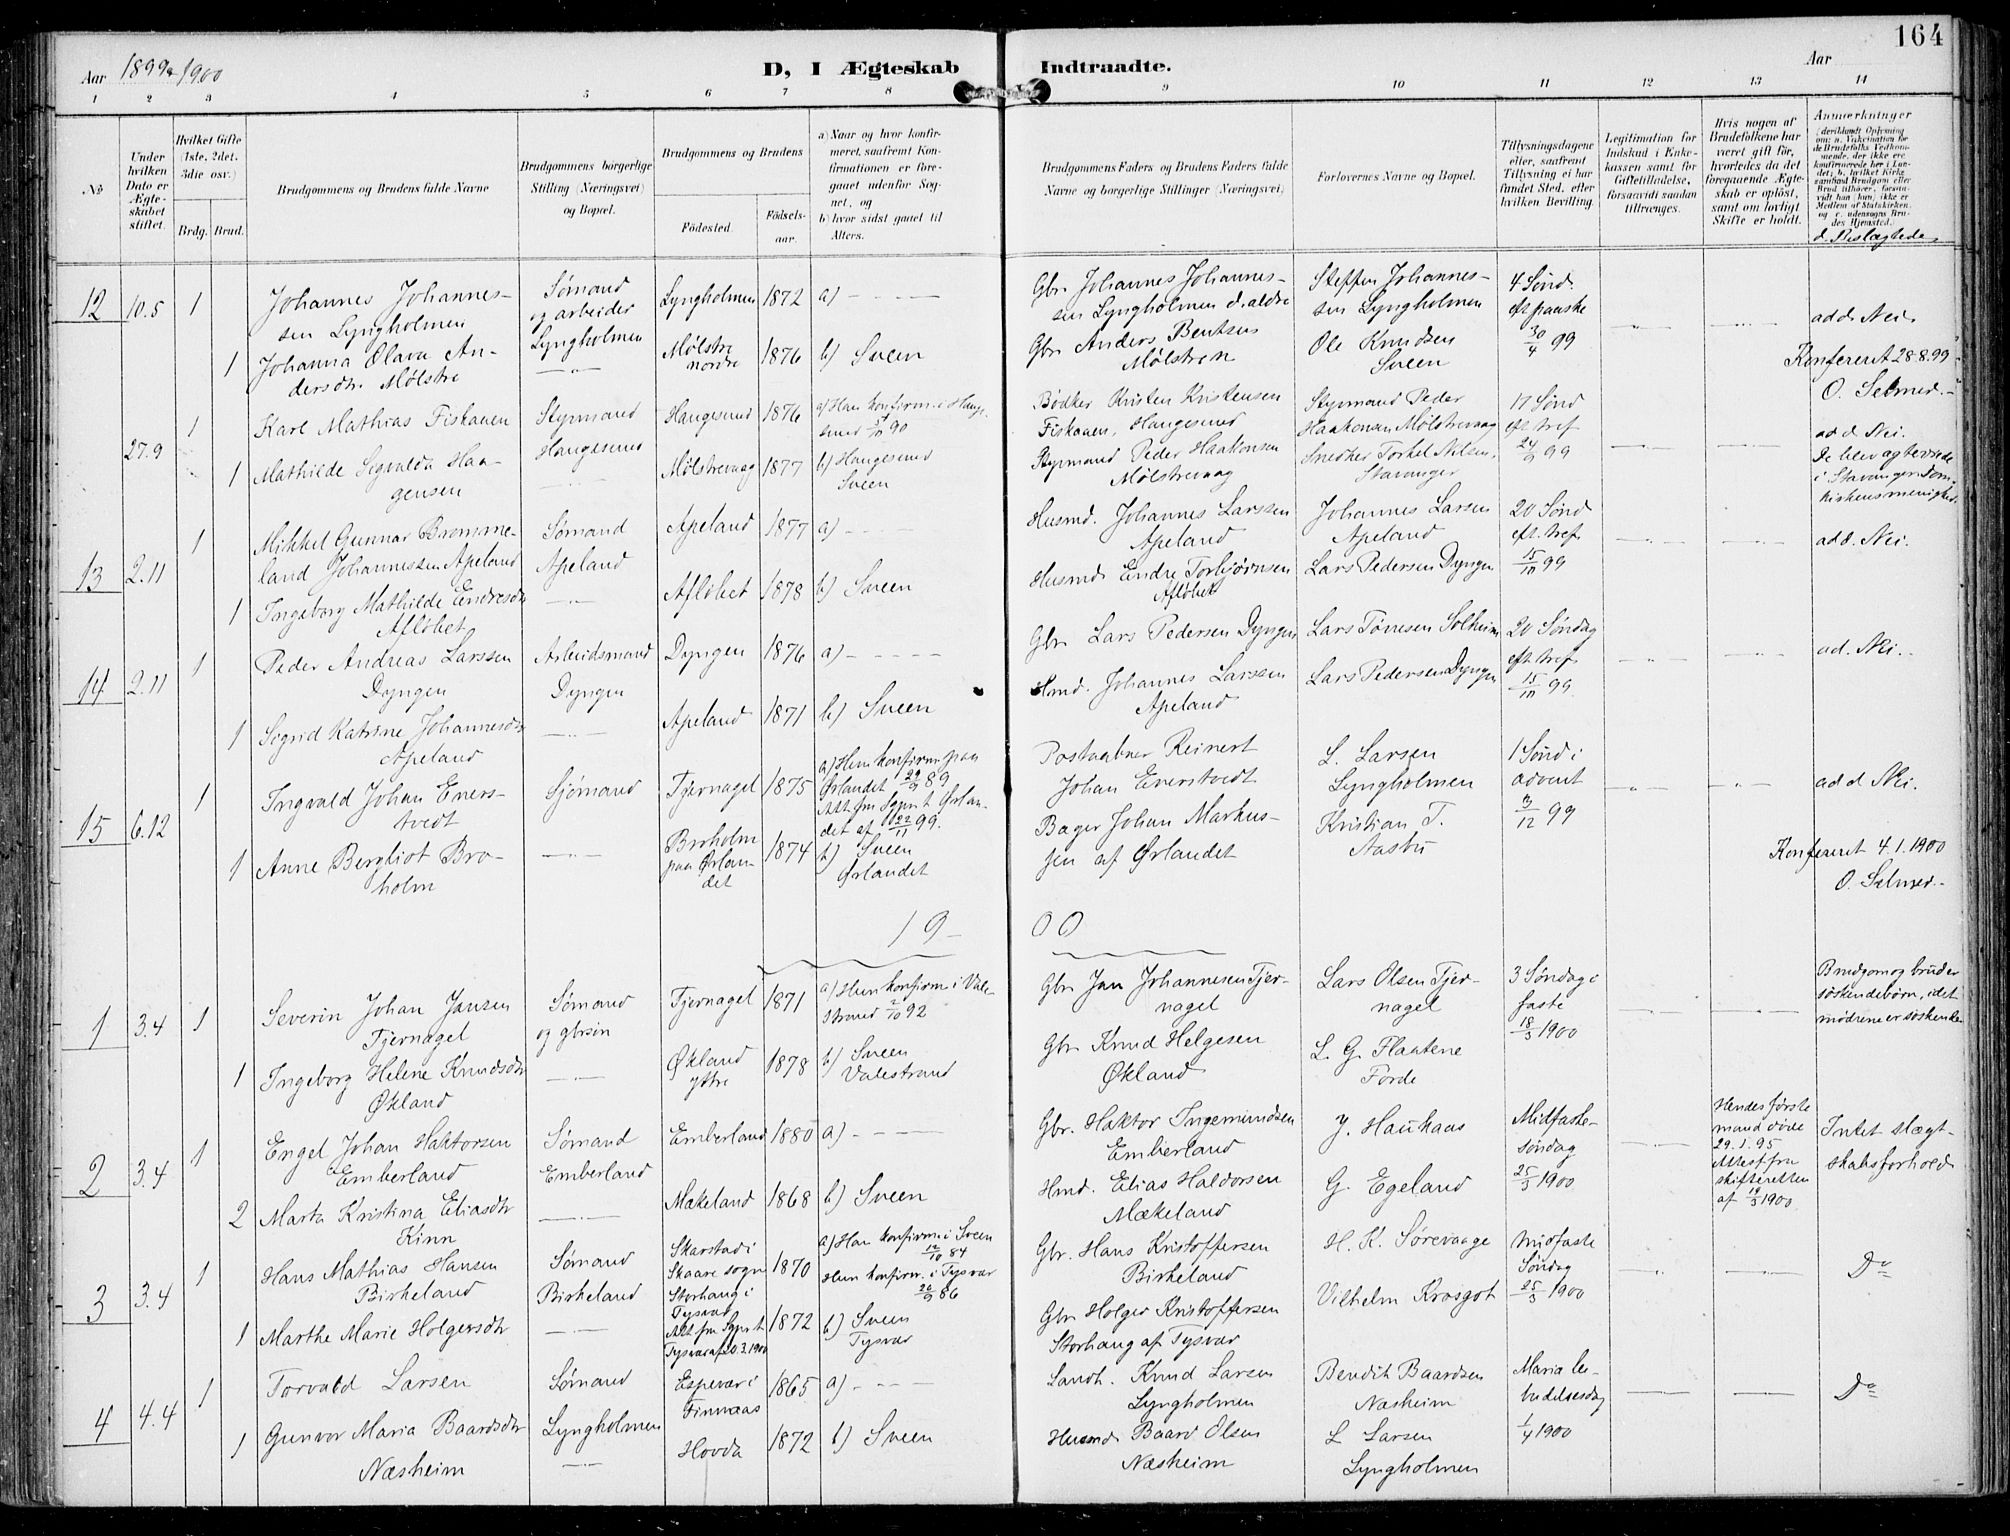 164
Aar 1899 & 1900
D, I Ægteskab Indtraadte.
Aar
1 2 3 4 5 6 7 8 9 10 11 12 13 14
No
Under hvilken Dato er Ægteskabet stiftet.
Hvilket Gifte (1ste, 2det, 3die osv.)
Brdg. Brud.
Brudgommens og Brudens fulde Navne
Brudgommens borgerlige Stilling (Næringsvei) og Bopæl.
Brudgommens og Brudens
Fødested.
Fødselsaar.
a) Naar og hvor konfirmeret, saafremt Konfirmationen er foregaaet udenfor Sognet, og
b) hvor sidst gaaet til Alters.
Brudgommens Faders og Brudens Faders fulde Navne og borgerlige Stillinger (Næringsvei)
Forlovernes Navne og Bopæl.
Tillysningsdagene eller, saafremt Tillysning ei har fundet Sted, efter hvilken Bevilling.
Legitimation for Indskud i Enkekassen samt for Giftetilladelse, forsaavidt saadan tiltrænges.
Hvis nogen af Brudefolkene har været gift før, hvorledes da det foregaaende Ægteskab er opløst, samt om lovligt Skifte er holdt.
Anmerkninger
d. Beslægtede
12 10.5 1 Johannes Johannes-
sen Lyngholmen
Sømand
og arbeider
Lyngholmen
Lyngholmen 1872 a) - - - -
Gbr Johannes Johannes-
sen Lyngholmen d. ældre
Steffen Johannes-
sen Lyngholmen
4 Sønd.
eft paaske
30/4 99
ad d. Nei.
1 Johanna Olava An-
dersdtr. Mølstre
Mølstre
nordre
1876 b) Sveen
Gbr Anders Bentsen
Mølstre n
Ole Knudsen
Sveen
Konfereret 28.8.99
O. Selmer.
27.9 1 Karl Mathias Fiskaaen
Styrmand
Haugesund
Haugesund 1876 a) Han konfirm. i Hauge-
sund 5/10 90
Bødker Kristen Kristensen
Fiskaaen, Haugesund
Styrmand Peder
Haakonsen Mølstrevaag
17 Sønd
eft tref
24/9 99
ad d. Nei.
De blev ægteviede
i Stavanger Dom-
kirkens menighed.
1 Mathilde Segvalda Haa-
gensen
Mølstrevaag 1877 b) Haugesund
Sveen
Styrmand Peder Haakonsen
Mølstrevaag
Snedker Torkel Nilsen,
Stavanger
13 2.11 1 Mikkel Gunnar Bremme-
land Johannessen Apeland
Sømand
Apeland
Apeland 1877 a) - -
Husmd. Johannes Larssen
Apeland
Johannes Larsen
Apeland
20 Sønd
eft. tref
15/10 99
ad d. Nei.
1 Ingeborg Mathilde Endresdtr
Afløbet
Afløbet 1878 b) Sveen
Husmd Endre Torbjørnsen
Afløbet
Lars Pedersen Dyngen
14 2.11 1 Peder Andreas Larssen
Dyngen
Arbeidsmand
Dyngen
Dyngen 1876 a) - - - - -
Gbr Lars Pedersen Dyngen
Lars Tønesen Solheim
20 Søndag
eft. tref
15/10 99.
ad. Nei.
1 Segrid Katrine Johannesdtr
Apeland
Apeland 1871 b) Sveen
Hmd. Johannes Larssen
Apeland
Lars Pedersen Dyngen
15 6.12 1 Ingvald Johan Evers-
tvedt
Sjømand
Tjernagel 1875 a) Hun konfirm paa
Ørlandet 29/9 89
Att fra Sgpr. t Ørlan-
det af 22/11 99.
Postaabner Reinert
Johan Everstvedt
L. Larsen
Lyngholmen
1 Sønd i
advent
3/12 99
ad d Nei.
1 Anne Bergliot Bro-
holm
Broholm
paa Ørlan-
det
1874 b) Sveen
Ørlandet
Bager Johan Markus-
sen af Ørlandet
Kristian T.
Aasbu
Konfereret 4.1.1900
O. Selmer.
19 00
1 3.4 1 Severin Johan Jansen
Tjernagel
Sømand
og gbrsøn
Tjernagel 1871 a) Hun konfirm. i Vale-
strand 2/10 92
Gbr Jan Johannesen Tjer-
nagel
Lars Olsen Tjer-
nagel
3 Søndag i
faste
18/3 1900
Brudgom og brud er
søskendebørn, idet
mødrene er søskende
1 Ingeborg Helene Knudsdtr
Økland
Økland
ytre
1878 b) Sveen
Valestrand
Gbr Knud Helgesen
Økland
L. G. Flaatene
Førde
2 3.4 1 Engel Johan Haktorsen
Emberland
Sømand
Emberland
Emberland 1880 a) - - - -
Gbr. Haktor Ingemundsen
Emberland
J. Haukaas
Midfaste-
søndag
25/3 1900
Hendes første
mand døde
29.1.95
Attest fra
skifteretten
af 19/3 1900
Intet slægt-
skabsforhold
2 Marta Kristina Eliasdtr
Kinn
Mækeland 1868 b) Sveen
Hmd. Elias Haldorsen
Mækeland
G. Egeland
3 3.4 1 Hans Mathias Hansen
Birkeland
Sømand
Birkeland
Skarstad i
Skaare sogn
1870 a) Han konfirm. i Sveen
12/10 84
Hun konfirm. i Tysvær
26/9 86
Gbr. Hans Kristoffersen
Birkeland
H. K. Sørevaage
Midfaste
Søndag
25/3 1900
Do
1 Marthe Marie Holgersdtr
Storhaug i
Tysvær
Att fra Sgpr. t
Tysvær af 20.3.1900
1872 b) Sveen
Tysvær
Gbr Holger Kristoffersen
Storhaug af Tysvær
Vilhelm Krosgot
4 4.4 1 Torvald Larsen
Sømand
Lyngholmen
Espevær i
Finnaas
1865 a) - - - -
Landh. Knud Larsen
Lyngholmen
Bendik Baardsen
Næsheim
Maria be-
budelsesdag
1/4 1900
Do
1 Gunvor Maria Baardsdtr
Næsheim
Hovda 1872 b) Sveen
Husmd Baard Olsen
Næsheim
L Larsen
Lyngholmen